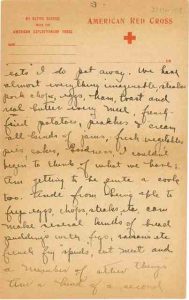 3
ON ACTIVE SERVICE
WITH THE
AMERICAN EXPEDITIONARY FORCE
AMERICAN RED CROSS
eats I do put away. We have
almost everything imaginable, steaks
pork chops, eggs, ham, toast and
real butter every meal, french
fried potatoes, peaches & cream
all kinds of jams, fresh vegetables
pies cakes, Goodness I couldn't
begin to think of what we have. I
am getting to be quite a cook
too. Aside from being able to
fry eggs, chops, steaks etc can
make several kinds of bread
puddings with figs,
french fry spuds, and
a number of other things
and a second